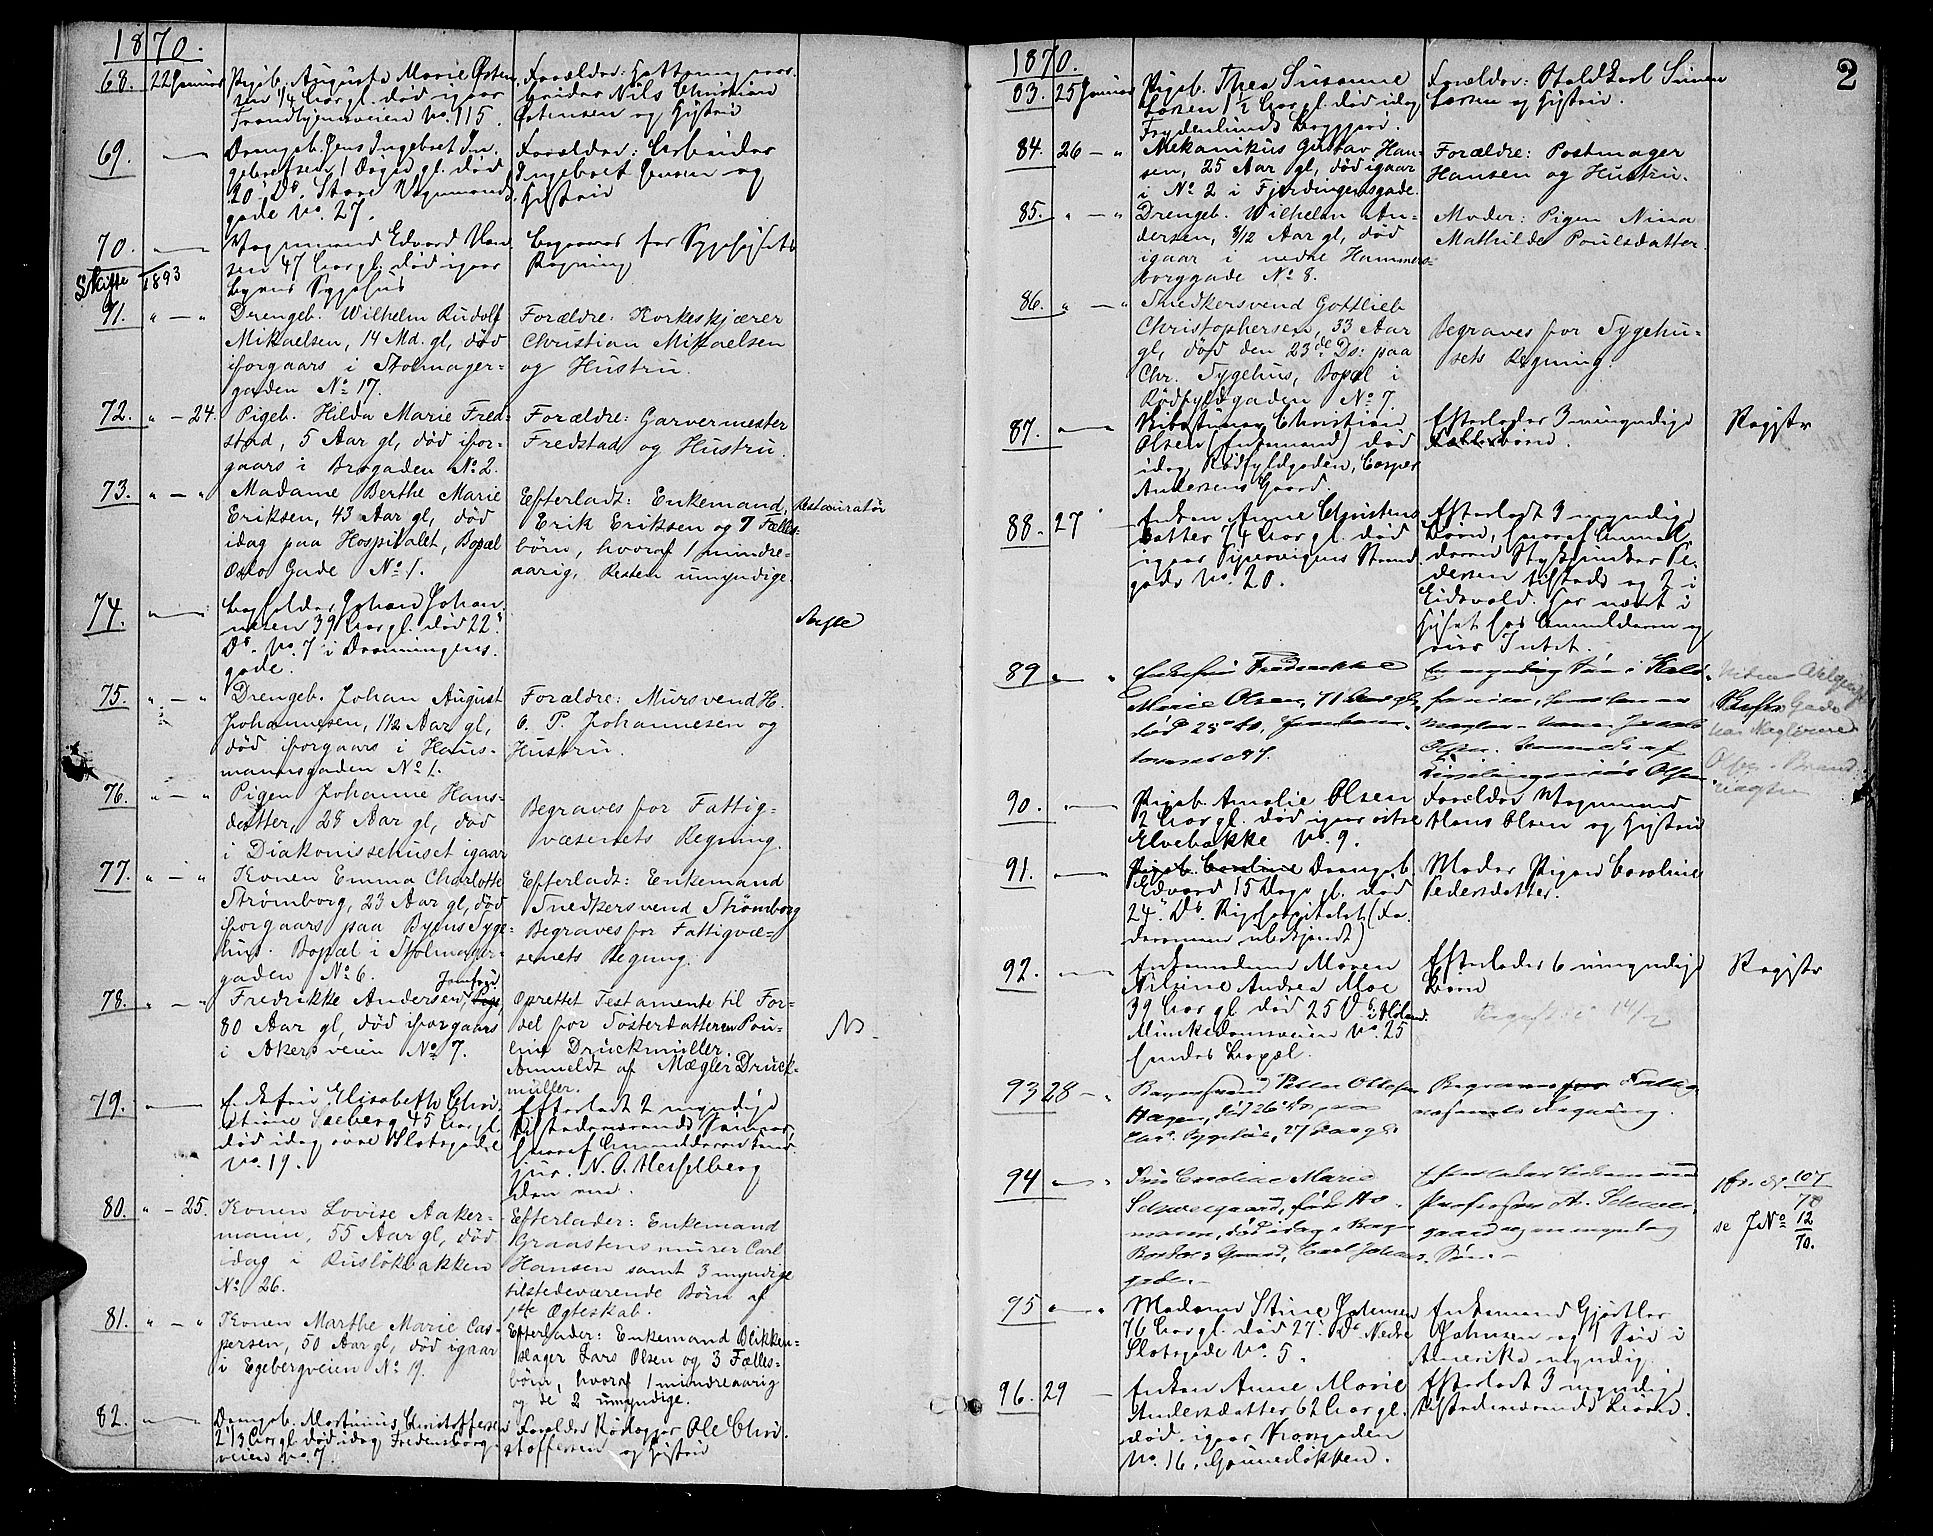 1870.
68. 22 Januar Pigeb. Augusta Marie Østen-
sen 1/4 Aar gl. død igaar
Trondhjemsveien No. 115.
Forældre:
beider Nils Christian
Østensen og Hustru
69. — Drengeb. Jens Ingebret In-
gebretsen 1 Dag gl. død
20' Ds. Store Vognmands-
gade No. 27.
Forældre: Arbeider
Ingebret Jensen og
Hustru
70. — Vognmand Edvard Han-
sen 47 Aar gl. død igaar
Byens Sygehus
Begraves for Sygehusets
Regning
Skifte 1893
71. " — " Drengeb. Wilhelm Rudolf
Mikaelsen, 14 Md. gl, død
iforgaars i Stolmager-
gaden No 17.
Forældre: Korkeskjærer
Christian Mikaelsen
og Hustru.
72. " — 24. Pigeb. Hilda Marie Fred-
stad, 5 Aar gl, død ifor-
gaars i Brogaden No 2.
Forældre: Garvermester
Fredstad og Hustru.
73. " — " Madame Berthe Marie
Eriksen, 43 Aar gl, død
idag paa Hospitalet, Bopæl
Oslo Gade No 1.
Efterladt: Enkemand,
Erik Eriksen og 7 Fælles-
børn, hvoraf 1 mindre-
aarig, Resten umyndige
Restauratør
74. " — Johan Johan-
nesen 39 Aar gl. død 22'
Ds. No. 7 i Dronningens-
gade.
Skifte
75. " — " Drengeb. Johan August
Johannesen, 1 1/2 Aar gl,
død iforgaars i Haus-
mannsgaden No 1.
Forældre: Mursvend H.
O. P. Johannesen og
Hustru.
76. " — " Pigen Johanne Hans-
datter, 28 Aar gl, død
i Diakonissehuset igaar
Begraves for Fattig-
væsenets Regning.
77. " — " Konen Emma Charlotte
Strømborg, 23 Aar gl, død
iforgaars paa Byens Syge-
hus. Bopæl i Stolmager-
gaden No 6.
Efterladt: Enkemand
Snedkersvend Strømborg
Begraves for Fattigvæ-
senets Regning.
78. " — " Fredrikke Andersen, Jomfru
80 Aar gl, død iforgaars
i Akersveien No 7.
Oprettet Testamente til For-
del for Søsterdatteren Pou-
line Druckmüller.
Anmeldt af Mægler Druck-
müller.
79. — Enkefru Elisabeth Chri-
stiane Seeberg 45 Aar gl.
død idag øvre Slotsgade
No. 19.
Efterladt 2 myndige
tilstedeværende Sønner
hvoraf Anmelderen Cand.
jur. N. A. Hesselberg
den ene.
80. " — 25. Konen Lovise Aaker-
mann, 55 Aar gl, død
idag i Ruseløkbakken
No 26.
Efterlader: Enkemand
Graastensmurer Carl
Hansen samt 3 myndige
tilstedeværende Børn af
1ste Ægteskab.
81. " — " Konen Marthe Marie Cas-
persen, 50 Aar gl, død igaar
i Egebergveien No 19.
Efterlader: Enkemand Blikken-
slager Lars Olsen og 3 Fælles-
børn, hvoraf 1 mindreaarig
og de 2 umyndige.
82. — Drengeb. Martinius Christoffersen
2 1/3 Aar gl. død idag Fredensborg-
veien No. 7.
Forældre Rødegjer Ole Chri-
stoffersen og Hustru
1870.
2
83. 25 Januar Pigeb. Thea Susanne
Larsen 1 1/2 Aar gl. død idag
Frydenlunds Bryggeri.
Forældre: Staldkarl Simen
Larsen og Hustru.
84. 26 — " Mekanikus Gustav Han-
sen, 25 Aar gl, død igaar
i No 2 i Fjerdingensgade.
Forældre: Postmager
Hansen og Hustru.
85. " — " Drengeb. Wilhelm An-
dersen, 8/12 Aar gl, død
igaar i nedre Hammers-
borggade No 8.
Moder: Pigen Nina
Mathilde Poulsdatter.
86. " — " Snedkersvend Gottlieb
Christophersen, 33 Aar
gl, død den 23de Ds: paa
Chr. Sygehus, Bopæl i
Rødfyldgaden No 7.
Begraves for Sygehu-
sets Regning.
87. — Christian
Olsen (Enkemand) død
idag Rødfyldgaden, Casper
Andersens Gaard.
Efterlader 3 umyndige
Fællesbørn.
Registr
88. 27 — Enken Anne Christens-
datter 74 Aar gl. død
igaar Pipervigens Strand-
gade No. 20.
Efterladt 3 myndige
Børn, hvoraf Anmel-
deren Styksjunker Pe-
dersen tilstede og 2 i
Eidsvold. Har været i
Huset hos Anmelderen og
eier Intet.
89 " — " Enkefru Fredrikke
Marie Olsen, 71 Aar gl,
død 25' ds,
En myndig Søn i Kali-
fornien,
Olsen. Anmeldt af
Olsen
Skifte Gade
90. — Pigeb. Amalie Olsen
2 Aar gl. død igaar østre
Elvebakke No. 9.
Forældre Vognmand
Hans Olsen og Hustru
91. — Pigeb. Caroline Drengeb.
Edvard 15 Dage gl. død
24' Ds. Rigshospitalet (Fa-
derens navn ubekjendt)
Moder Pigen Caroline
Pedersdatter.
92. — Enkemadame Maren
Nilsine Andrea Moe
39 Aar gl. død 25 Ds.
Munkedamsveien No. 25
hendes Bopæl.
Efterlader 6 umyndige
Børn
Registr
93 28 — " Petter Ottesen
Hagen, død 26' ds, paa
Chra. Sygehus, 27 Aar gl.
Begraves for Fattig-
væsenets Regning.
94 " — " Fru Caroline Marie
Schweigaard, født Ho-
mann, død idag i
Gaard, Carl Johans
gade. —
Efterlader Enkemand
Professor A. Schwei-
gaard og en myndig
Søn. —
107/70
se JNo 12/70.
95 " — " Madame Stine Johnsen
76 Aar gl. død 27' Ds. Nedre
Slotsgade No. 5.
Enkemand Gjørtler
Johnsen og 1 Søn i
Amerika myndig.
96. 29 — Enken Anne Marie
Andersdatter 62 Aar gl.
død igaar
No. 16, Grünerløkken.
Efterladt 3 myndige
tilstedeværende Børn.